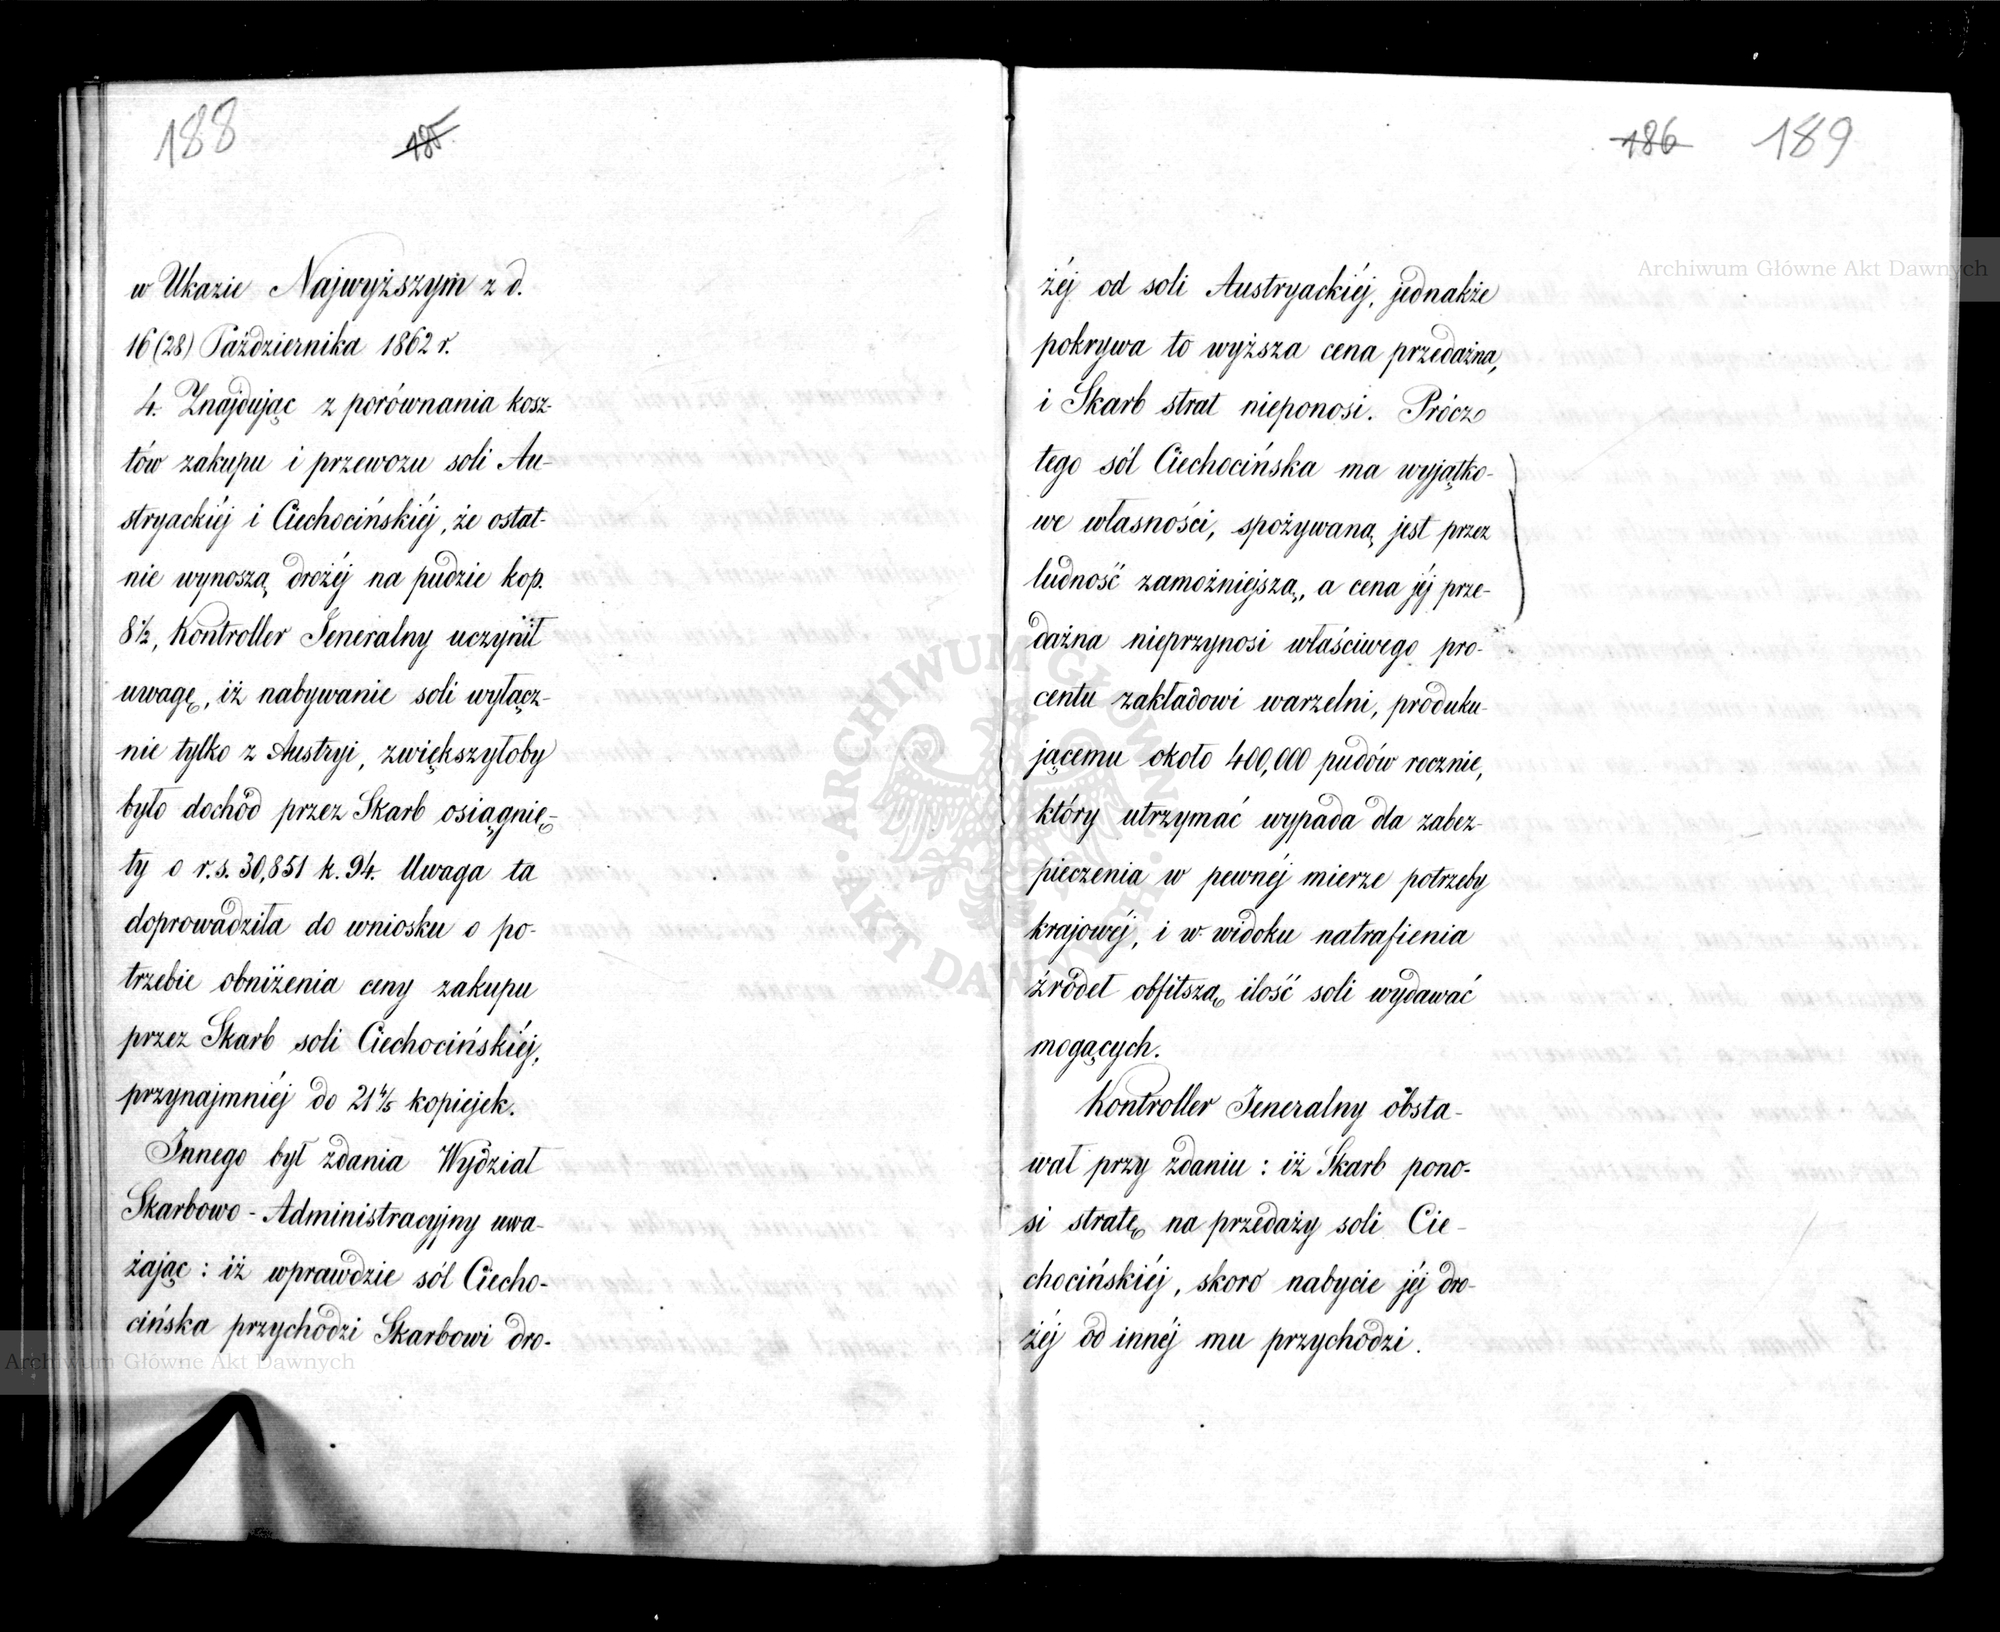 188
185
w Ukazie Najwyższym z d.
16 (28) Października 1862 r.
4. Znajdując z porównania kosz-
tów zakupu i przewozu soli Au-
stryackiéj i Ciechocińskiéj, że ostat-
nie wynoszą drożéj na pudzie kop.
8½, Kontroller Jeneralny uczynił
uwagę, iż nabywanie soli wyłącz-
nie tylko z Austryi, zwiększyłoby
było dochód przez Skarb osiągnię-
ty o r.s. 30,851 k. 94. Uwaga ta
doprowadziła do wniosku o po-
trzebie obniżenia ceny zakupu
przez Skarb soli Ciechocińskiéj,
przynajmniéj do 21 4/5 kopiejek.
Innego był zdania Wydział
Skarbowo-Administracyjny uwa-
żając: iż wprawdzie sól Ciecho-
cińska przychodzi Skarbowi dro-
186
189
żéj od soli Austryackiéj, jednakże
pokrywa to wyższa cena przedażna,
i Skarb strat nieponosi. Prócz
tego sól Ciechocińska ma wyjątko-
we własności, spożywaną jest przez
ludność zamożniejszą, a cena jéj prze-
dażna nieprzynosi właściwego pro-
centu zakładowi warzelni, produku-
jącemu około 400,000 pudów rocznie,
który utrzymać wypada dla zabez-
pieczenia w pewnéj mierze potrzeby
krajowéj, i w widoku natrafienia
źródeł obfitszą ilość soli wydawać
mogących.
Kontroller Jeneralny obsta-
wał przy zdaniu: iż Skarb pono-
si stratę na przedaży soli Cie-
chocińskiéj, skoro nabycie jéj dro-
żéj od innéj mu przychodzi.
Archiwum Główne Akt Dawnych
Archiwum Główne Akt Dawnych
ARCHIWUM GŁÓWNE AKT DAWNYCH